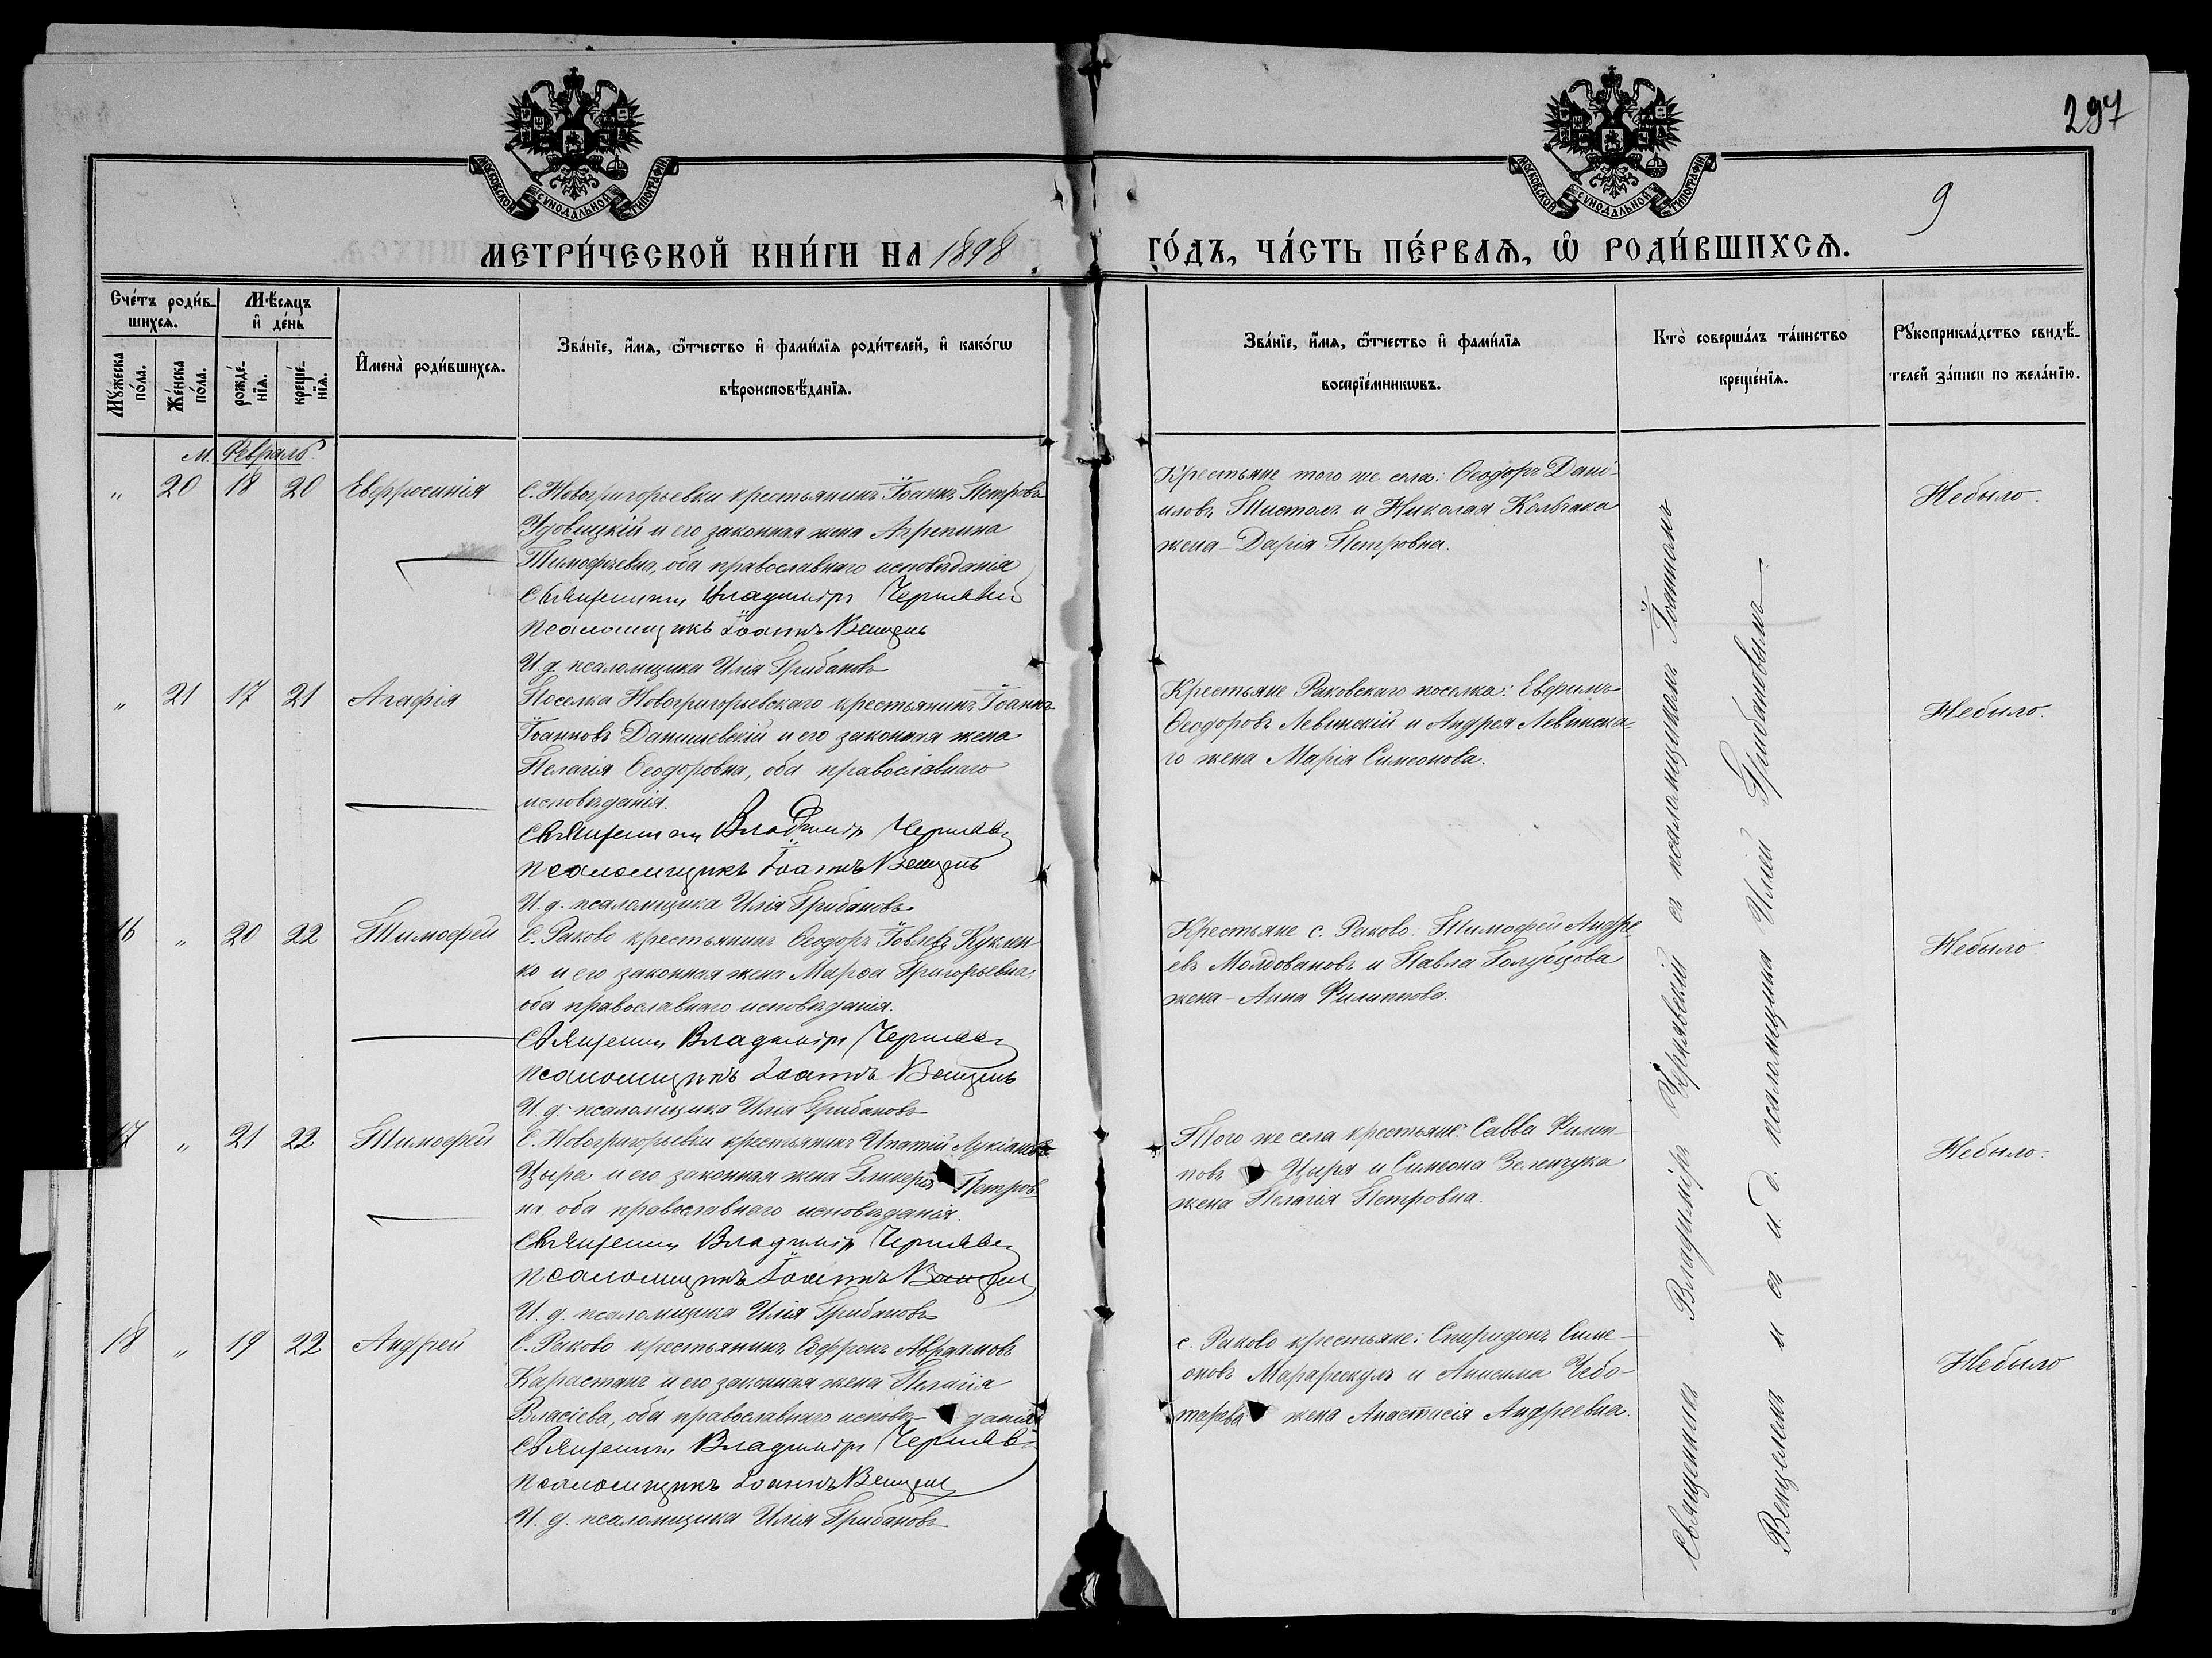 297
9
МОСКОВСКОЙ СѴНОДАЛЬНОЙ ТИПОГРАФІИ
МОСКОВСКОЙ СѴНОДАЛЬНОЙ ТИПОГРАФІИ
МЕТРИ́ЧЕСКОЙ КНИ́ГИ НА 1898 ГО́ДЪ, ЧА́СТЬ ПЕ́РВАЯ, Ѡ РОДИ́ВШИХСЯ.
Сче́тъ роди́в-
шихся.
Мꙋ́жеска по́ла.
Же́нска по́ла.
Мѣ́сяцъ и҆ де́нь
рожде́-нїя.
креще́-нїя.
И҆мена̀ роди́вшихся.
Зва́нїе, и҆́мя, ѻ҆́тчество и҆ фами́лїя роди́телей, и҆ како́гѡ
вѣроисповѣ́данїя.
Зва́нїе, и҆́мя, ѻ҆́тчество и҆ фами́лїя
воспрїе́мникѡвъ.
Кто̀ соверша́лъ та́инство
креще́нїя.
Рꙋкоприкла́дство свидѣ́-
телей за́писи по жела́нїю.
М. Февраль.
" 20 18 20 Евфросинія
С. Новогригорьевки крестьянинъ Іоаннъ Петровъ
Удовицкій и его законная жена Агрепина
Тимофѣевна, оба православнаго исповѣданія
Священникъ Владиміръ Чернявскій
Псаломщикъ Іоаннъ Венцель
И. д. псаломщика Илія Грибановъ
Крестьяне того же села: Ѳеодоръ Дані-
иловъ Тистолъ и Николая Кольчака
жена - Дарія Петровна.
Небыло.
" 21 17 21 Агафія
Поселка Новогригорьевскаго крестьянинъ Іоаннъ
Іоанновъ Данишевскій и его законная жена
Пелагія Ѳеодоровна, оба православнаго
исповѣданія.
Священникъ Владиміръ Черняв
Псаломщикъ Іоаннъ Венцель
И. д. псаломщика Илія Грибановъ
Крестьяне Раковскаго поселка: Евфимъ
Ѳеодоровъ Левинскій и Андрея Левинска-
го жена Марія Симеонова.
Небыло.
16 " 20 22 Тимофей
С. Раково крестьянинъ Ѳеодоръ Іовлевъ Куклен
ко и его законная жена Марѳа Григорьевна,
оба православнаго исповѣданія.
Священникъ Владиміръ Черняв
Псаломщикъ Іоаннъ Венцель
И. д. псаломщика Илія Грибановъ
Крестьяне с. Раково. Тимофей Андре
евъ Молдовановъ и Павла Голубцова
жена - Анна Филипова.
Небыло.
17 " 21 22 Тимофей
С. Новогригорьевки крестьянинъ Ипатій Лукіановъ
Цыра и его законная жена Гликерія Петров
на оба православнаго исповѣданія.
Священникъ Владиміръ Черняв
Псаломщикъ Іоаннъ Венцель
И. д. псаломщика Илія Грибановъ
Того же села крестьяне: Савва Филип-
повъ Цыря и Симеона Зеленчука
жена Пелагія Петровна.
Небыло.
18 " 19 22 Андрей
С. Раково крестьянинъ Софронъ Авраамовъ
Карастанъ и его законная жена Пелагія
Власіева, оба православнаго исповѣ данія
Священникъ Владиміръ Черняв
Псаломщикъ Іоаннъ Венцель
И. д. псаломщика Илія Грибановъ
с. Раково крестьяне: Спиридонъ Симе-
оновъ и Анисима Чебо-
тарева жена Анастасія Андреевна.
Небыло
Священникъ Владиміръ Чернявскій съ псаломщикомъ Іоанномъ
Венцелемъ и съ и. д. псаломщика Иліей Грибановымъ